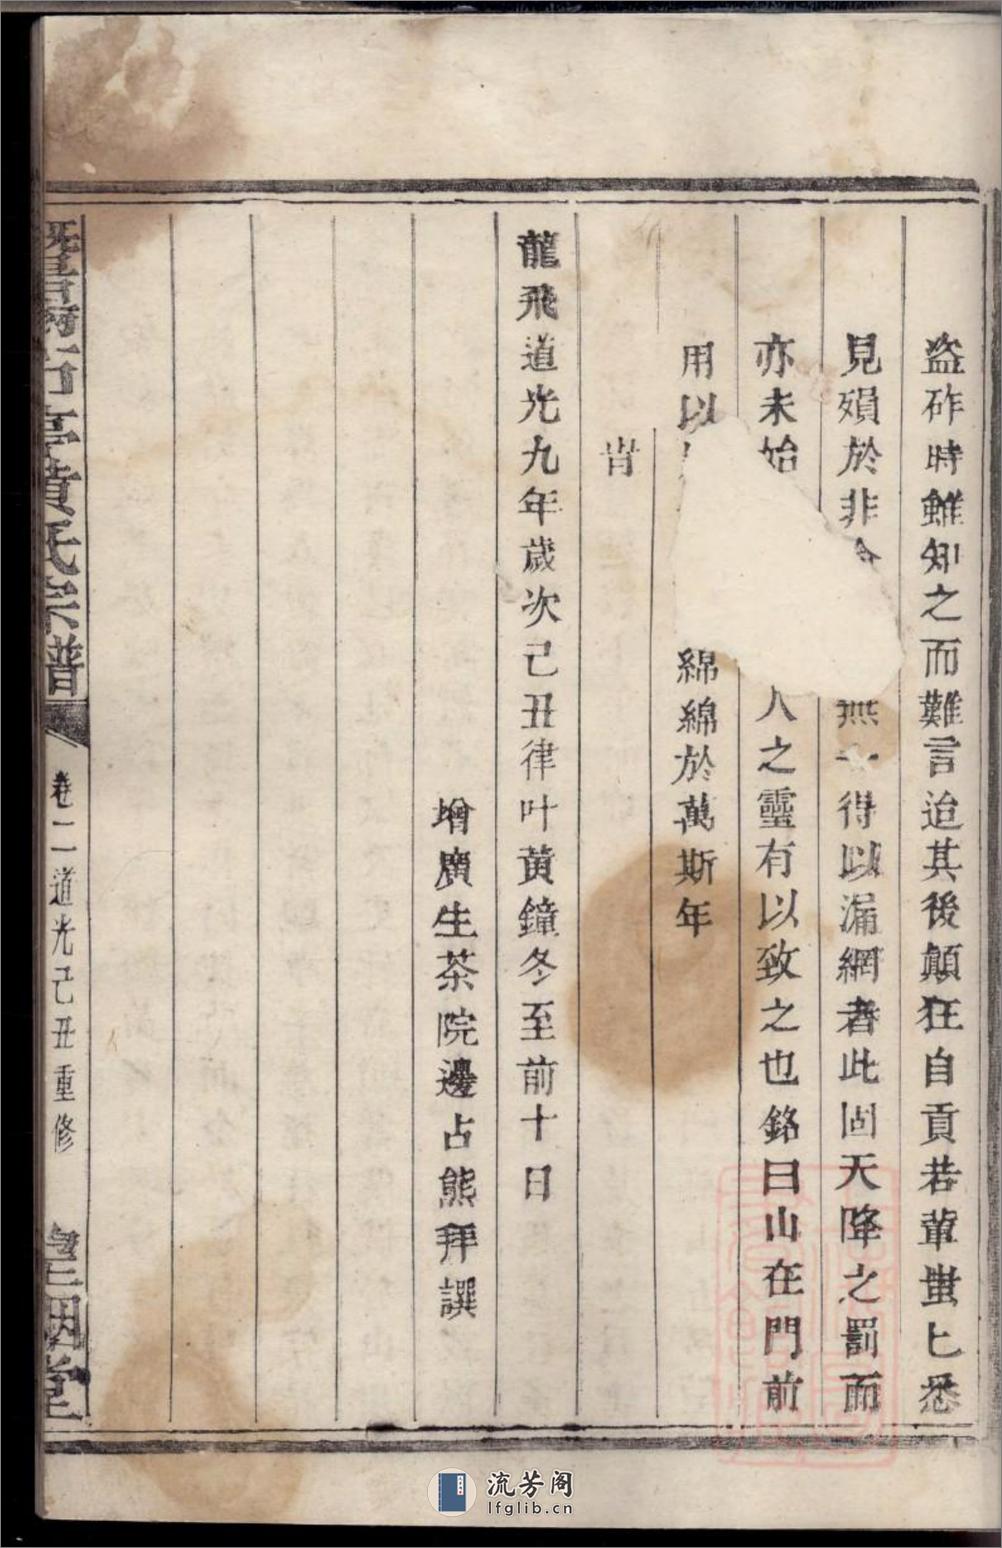 盜砟時雖知之而難言迨其後顛狂自貢若輩蚩乜悉
見殞於非 無一得以漏網者此固天降之罰而
亦未始 人之靈有以致之也銘曰山在門前
用以 綿綿於萬斯年
旹
龍飛道光九年歲次己丑律叶黃鐘冬至前十日
增廣生茶院邊占熊拜譔
亭黃氏宗譜
卷二 道光己丑重修
堂
流芳阁
lfglib.cn